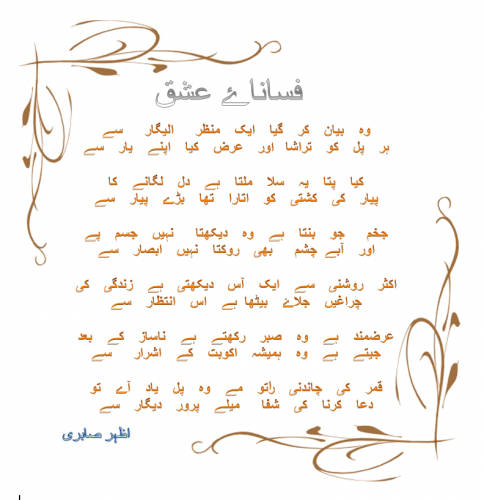 فساناۓ عشق
وہ بیان کر گیا ایک منظر الیگار سے
ہر پل کو تراشا اور عرض کیا اپنے یار سے
کیا پتا یہ سلا ملتا ہے دل لگانے کا
پیار کی کشتی کو اتارا تھا بڑے پیار سے
جخم جو بنتا ہے وہ دیکھتا نہیں جسم پے
اور آبے چشم بھی روکتا نہیں ابصار سے
اکثر روشنی سے ایک آس دیکھتی ہے زندگی کی
چراغیں جلاۓ بیٹھا ہے اس انتظار سے
عرضمند ہے وہ صبر رکھتے ہے ناساز کے بعد
جیتے ہے وہ ہمیشہ اکوبت کے اشرار سے
قمر کی چاندنی راتو مے وہ پل یاد آے تو
دعا کرنا کی شفا میلے پرور دیگار سے
اظہر صابری